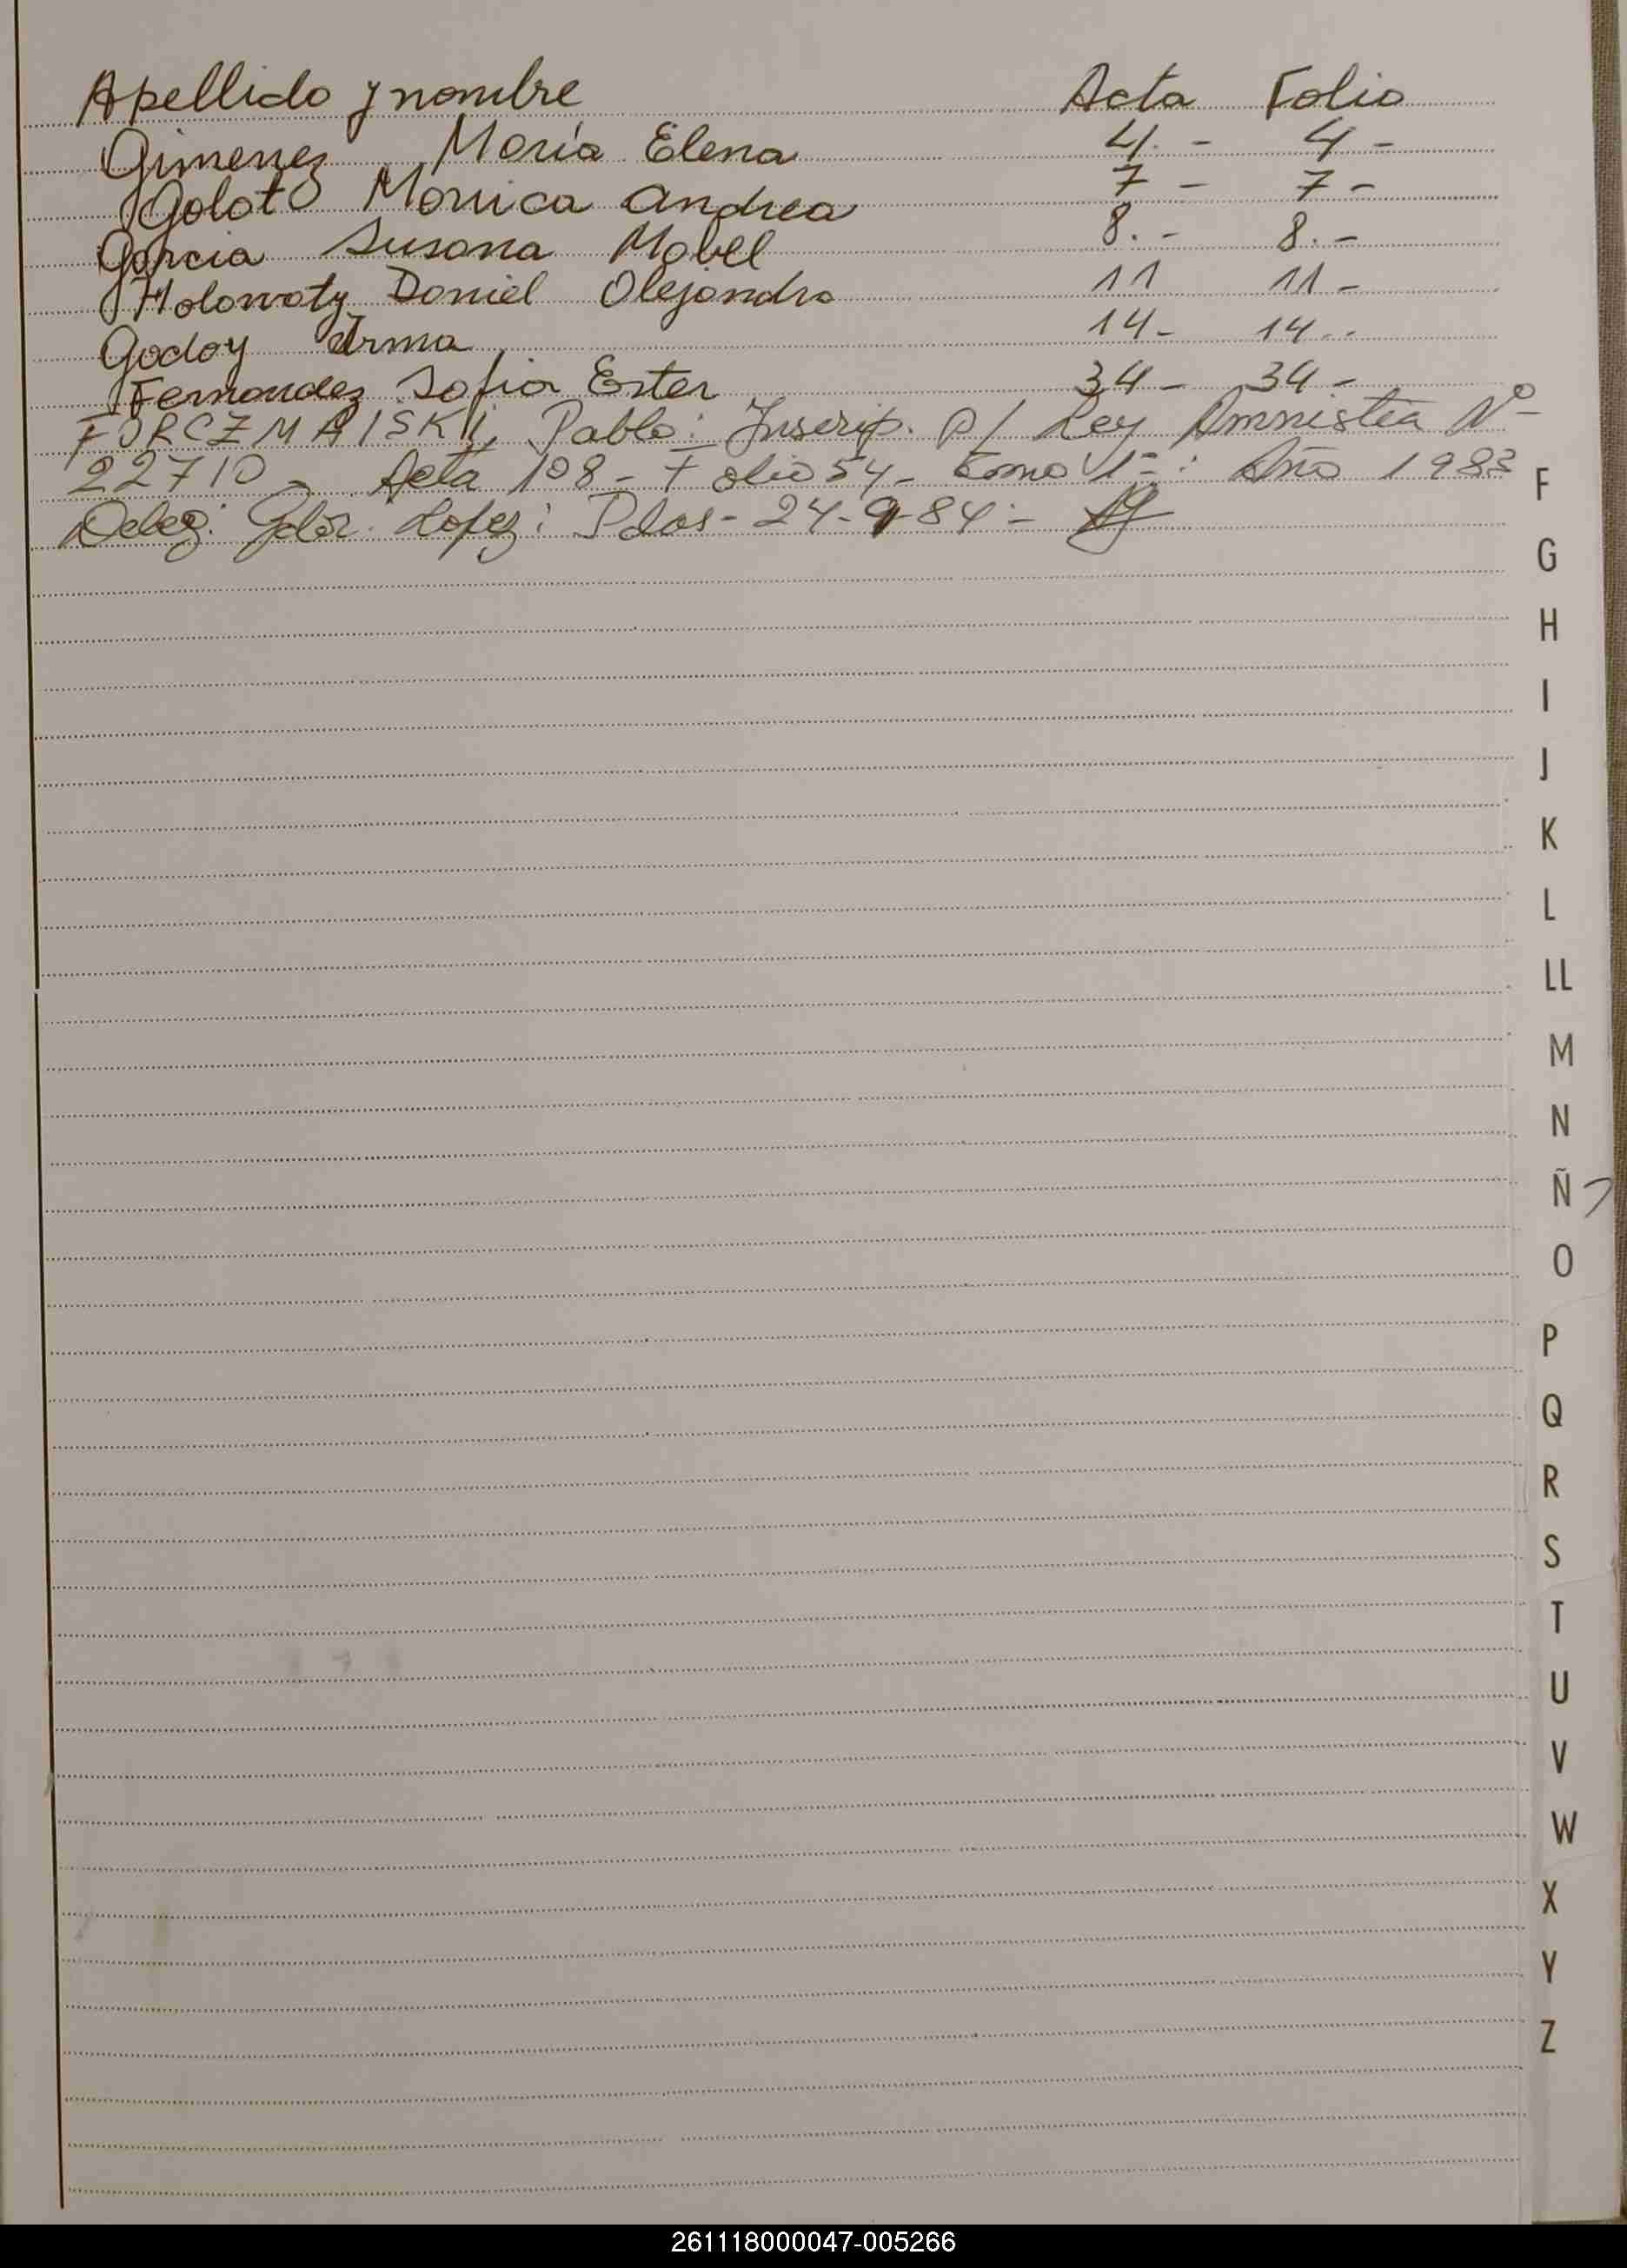 Apellido y nombre Acta Folio
Gimenez María Elena 4. - 4 -
Golot Monica Andrea 7 - 7 -
Garcia Susana Mabel 8. - 8. -
Holowaty Daniel Alejandro 11 11 -
Godoy Irma 14 - 14 - -
Fernandez Sofia Ester 34 - 34 -
FORCZMAISKII, Pablo: Inscrip. p/ Ley Amnistía Nº
22710 - Acta 108 - Folio 54 - tomo 1º: Año 1983
Deleg: Gdor. Lopez: Pdas - 24-9-84 : -
F
G
H
I
J
K
L
LL
M
N
Ñ
O
P
Q
R
S
T
U
V
W
X
Y
Z
261118000047-005266